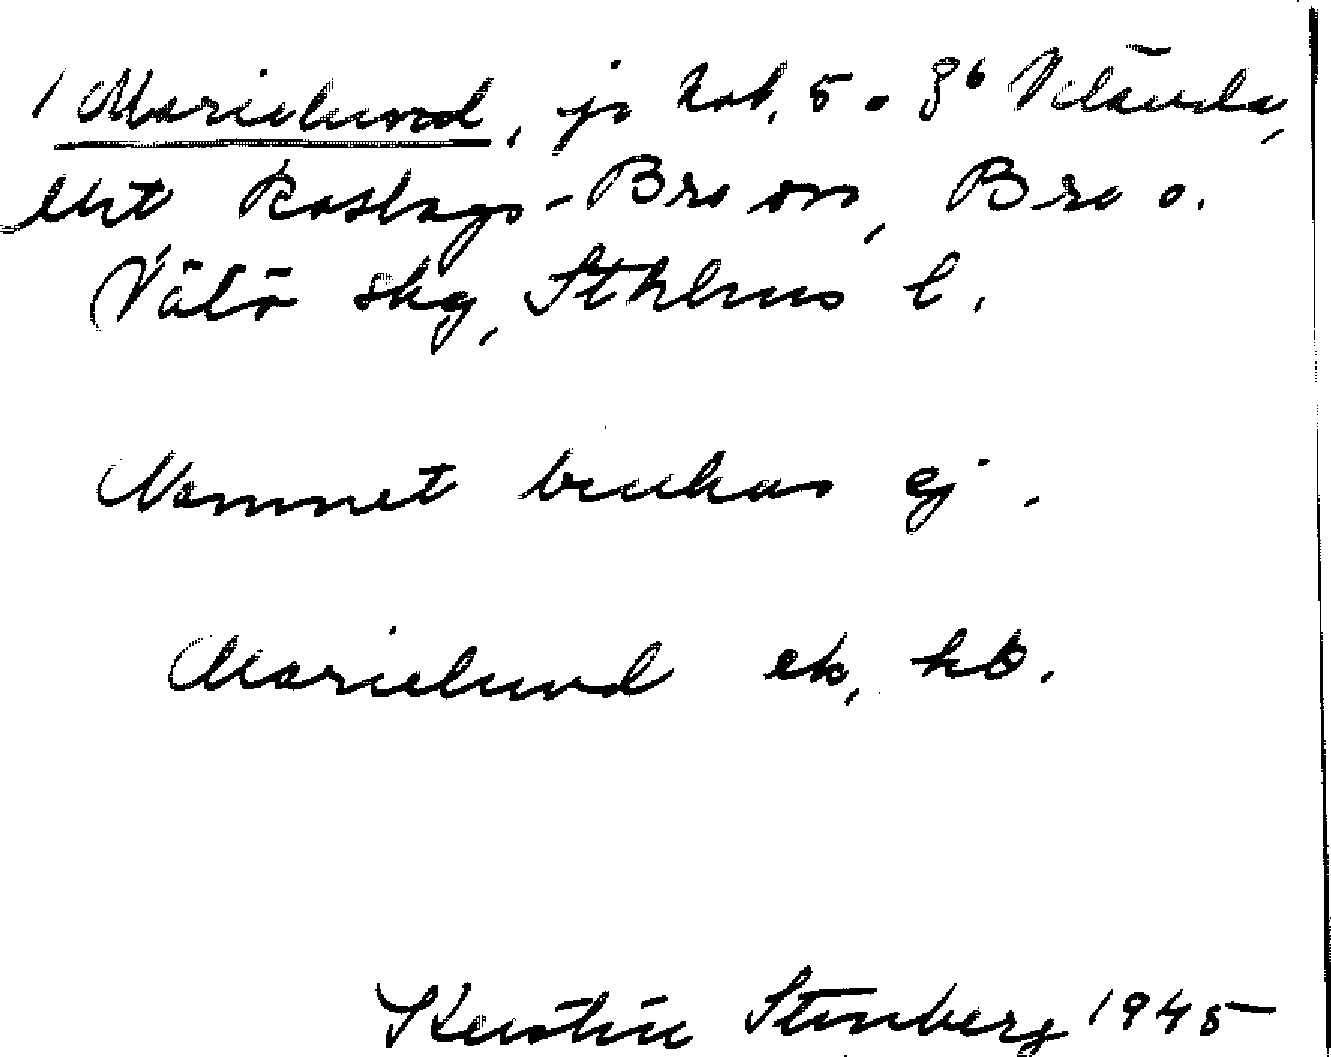 1 Marielund, på kab. 5 o. 8⁶ Nclända,
Ekt Roslags-Bro sn, Bro o.
Vätö skg, Sthlms l.
Namnet brukas ej.
Marielund ek, kb.
Kerstin Stenberg 1945